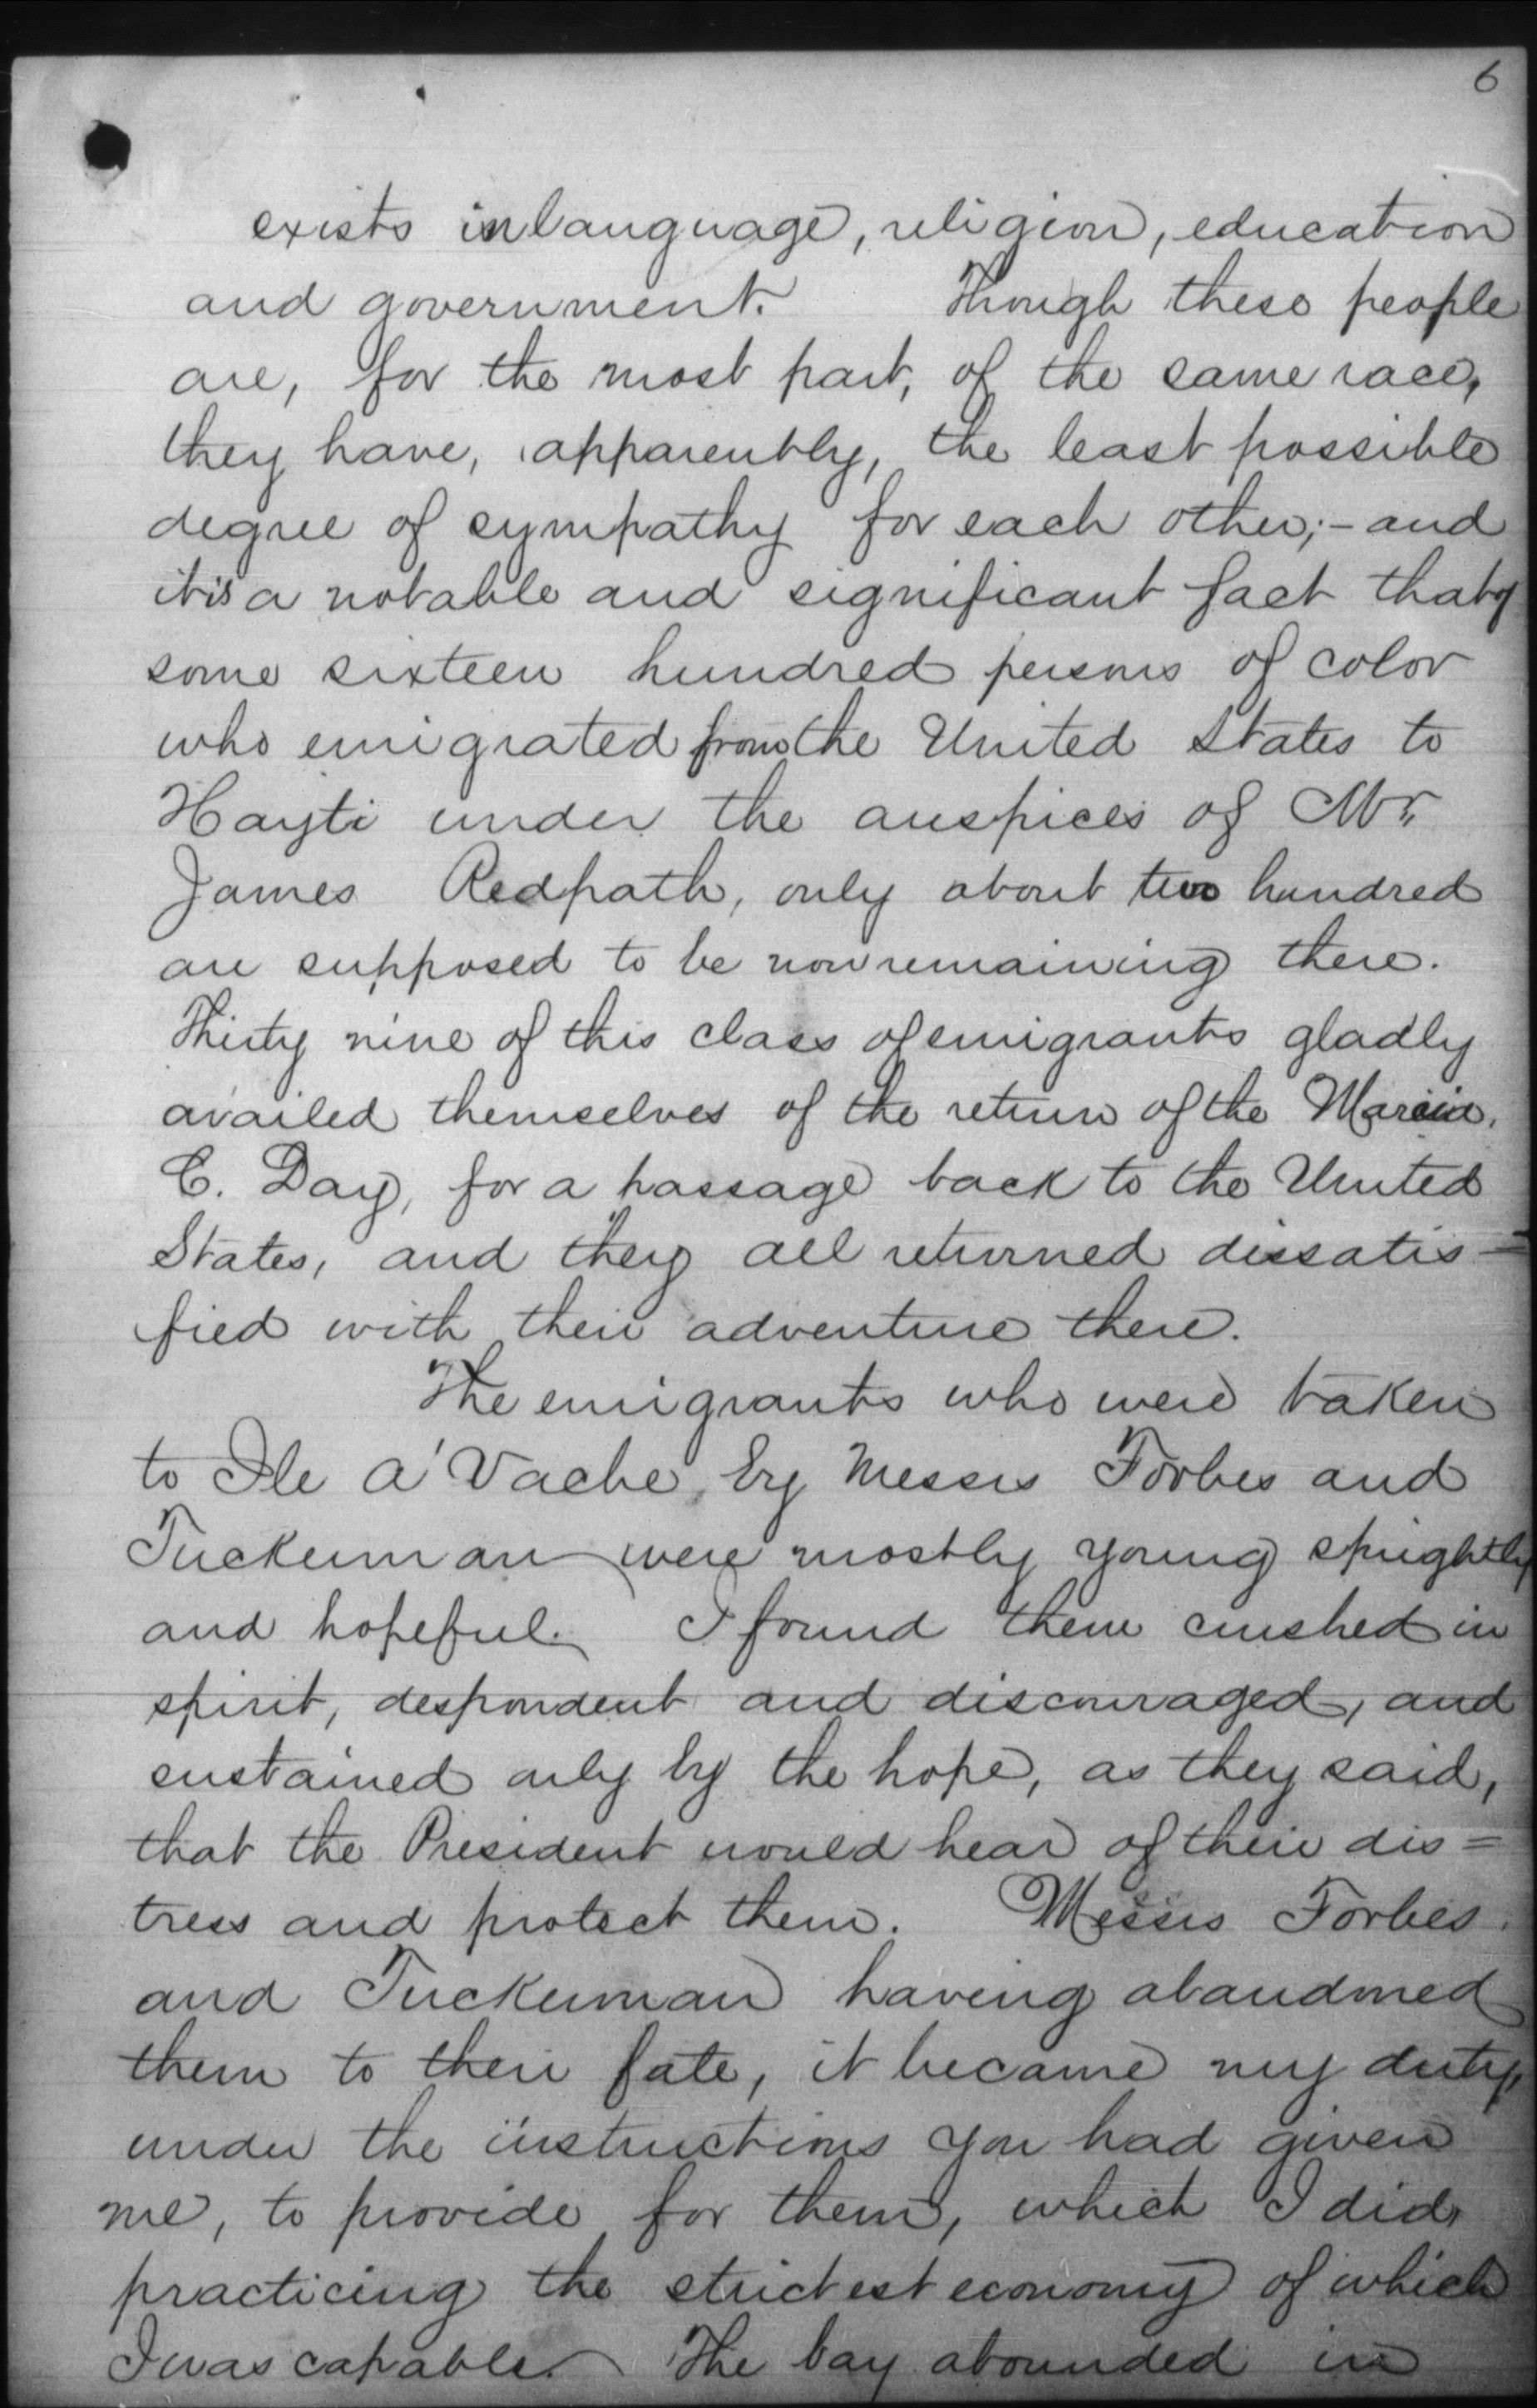 6
exists in language, religion, education
and government. Though these people
are, for the most part, of the same race,
they have, apparently, the least possible
degree of sympathy for each other;- and
it is a notable and significant fact that of
some sixteen hundred persons of color
who emigrated from the United States to
Hayti under the auspices of Mr.
James Redpath, only about two hundred
are supposed to be now remaining there.
Thirty nine of this class of emigrants gladly
availed themselves of the return of the Marcia.
C. Day, for a passage back to the United
States, and they all returned dissatis=
fied with their adventure there.
The emigrants who were taken
to Ile a' Vache by Messrs Forbes and
Tuckerman were mostly young sprightly
and hopeful. I found them crushed in
spirit, despondent and discouraged, and
sustained only by the hope, as they said,
that the President would hear of their dis=
tress and protect them. Messrs Forbes
and Tuckerman having abandoned
them to their fate, it became my duty,
under the instructions you had given
me, to provide for them, which I did,
practicing the strictest economy of which
I was capable. The bay abounded in